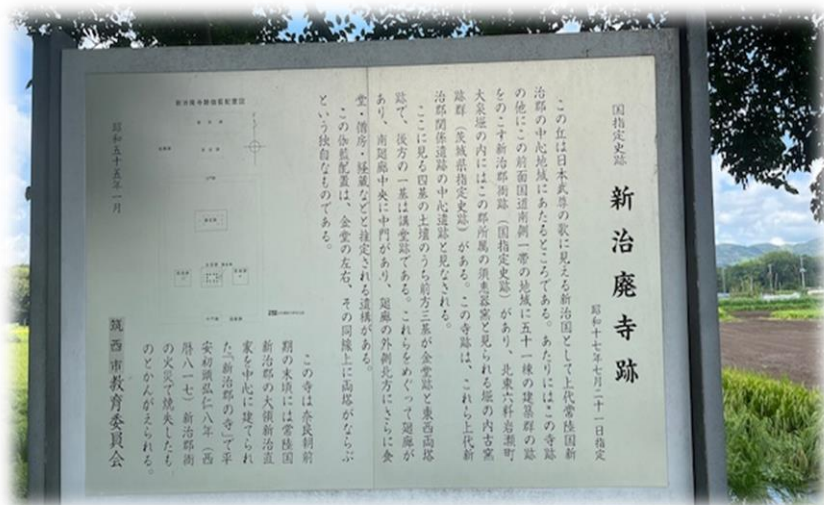 国指定史跡
新治廃寺跡
昭和十七年七月二十一日指定
この丘は日本武尊の歌に見える新治国として上代常陸国新
治郡の中心地域にあたるところである。あたりにはこの寺跡
の他にこの前面国道南側一帯の地域に五十一棟の建築群の跡
をのこす新治郡衙跡(国指定史跡)があり、北東六粁岩瀬町
大泉堀の内にはこの郡所属の須恵器窯と見られる堀の内古窯
跡群(茨城県指定史跡)がある。この寺跡は、これら上代新
治郡関係遺跡の中心遺跡と見なされる。
ここに見る四基の土壇のうち前方三基が金堂跡と東西両塔
跡で、後方の一基は講堂跡である。これらをめぐって廻廊が
あり、南廻廊中央に中門があり、廻廊の外側北方にさらに食
堂・僧房・経蔵などと推定される遺構がある。
この伽藍配置は、金堂の左右、その同線上に両塔がならぶ
という独自なものである。
この寺は奈良朝前
期の末頃には常陸国
新治郡の大領新治直
家を中心に建てられ
た『新治郡の寺』で平
安初頭弘仁八年(西
暦八一七)新治郡衙
の火災で焼失したも
のとかんがえられる。
新治廃寺跡伽藍配置図
昭和五十五年一月
筑西市教育委員会